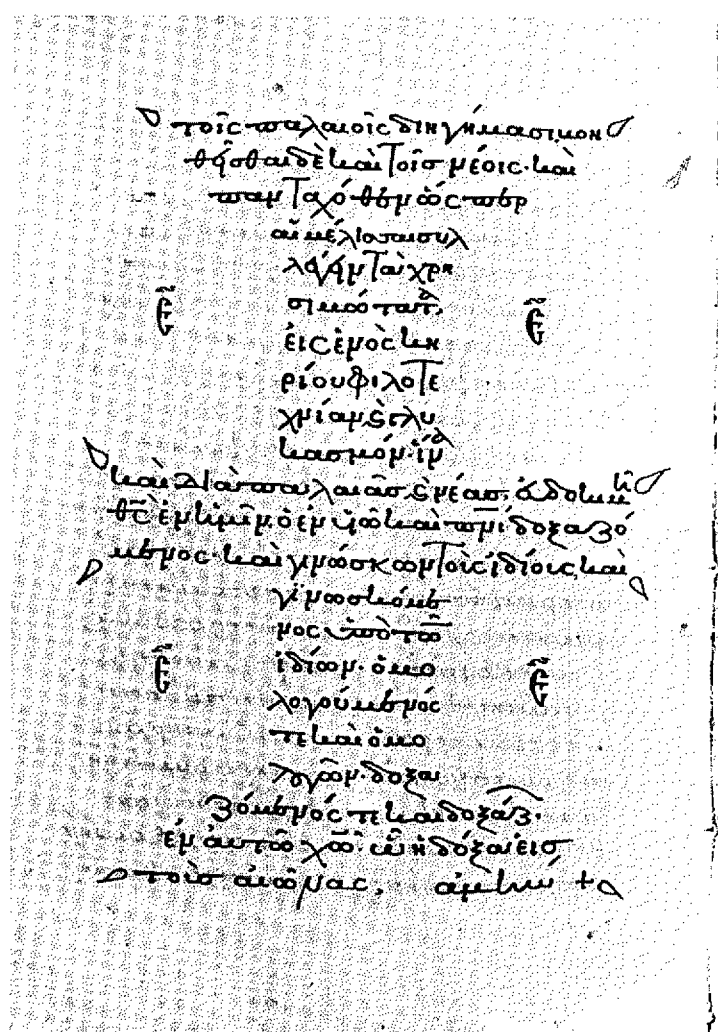 τοῖς παλαιοῖς διηγήμασι μον
θῆσθαι δὲ καὶ τοῖς νέοις· καὶ
πανταχόθεν ὡς περ
αἱ μέλισσαι συλ
λέγειν τὰ χρη
σιμώτατα,
εἰς ἑνὸς κη
ρίου φιλοτε
χνίαν ἐγλυ
κασμόν· ἵν
καὶ διὰ παλαιᾶς ϛ νέας, ὁ δοτικ
θς ἐν ὑμῖν ὁ ἐν υἱῶ καὶ πνι δοξαζό
μενος· καὶ γινώσκων τοῖς ἰδίοις, καὶ
γινωσκόμε
νος ὑπὸ τῶν
ἰδίων· ὁμο
λογούμενός
τε καὶ ὁμο
λογῶν· δοξα
ζόμενός τε καὶ δοξάζ·
ἐν αὐτῶ χῶ· ὧ ἡ δόξα εἰς
τοὺς αἰῶνας, ἀμήν +